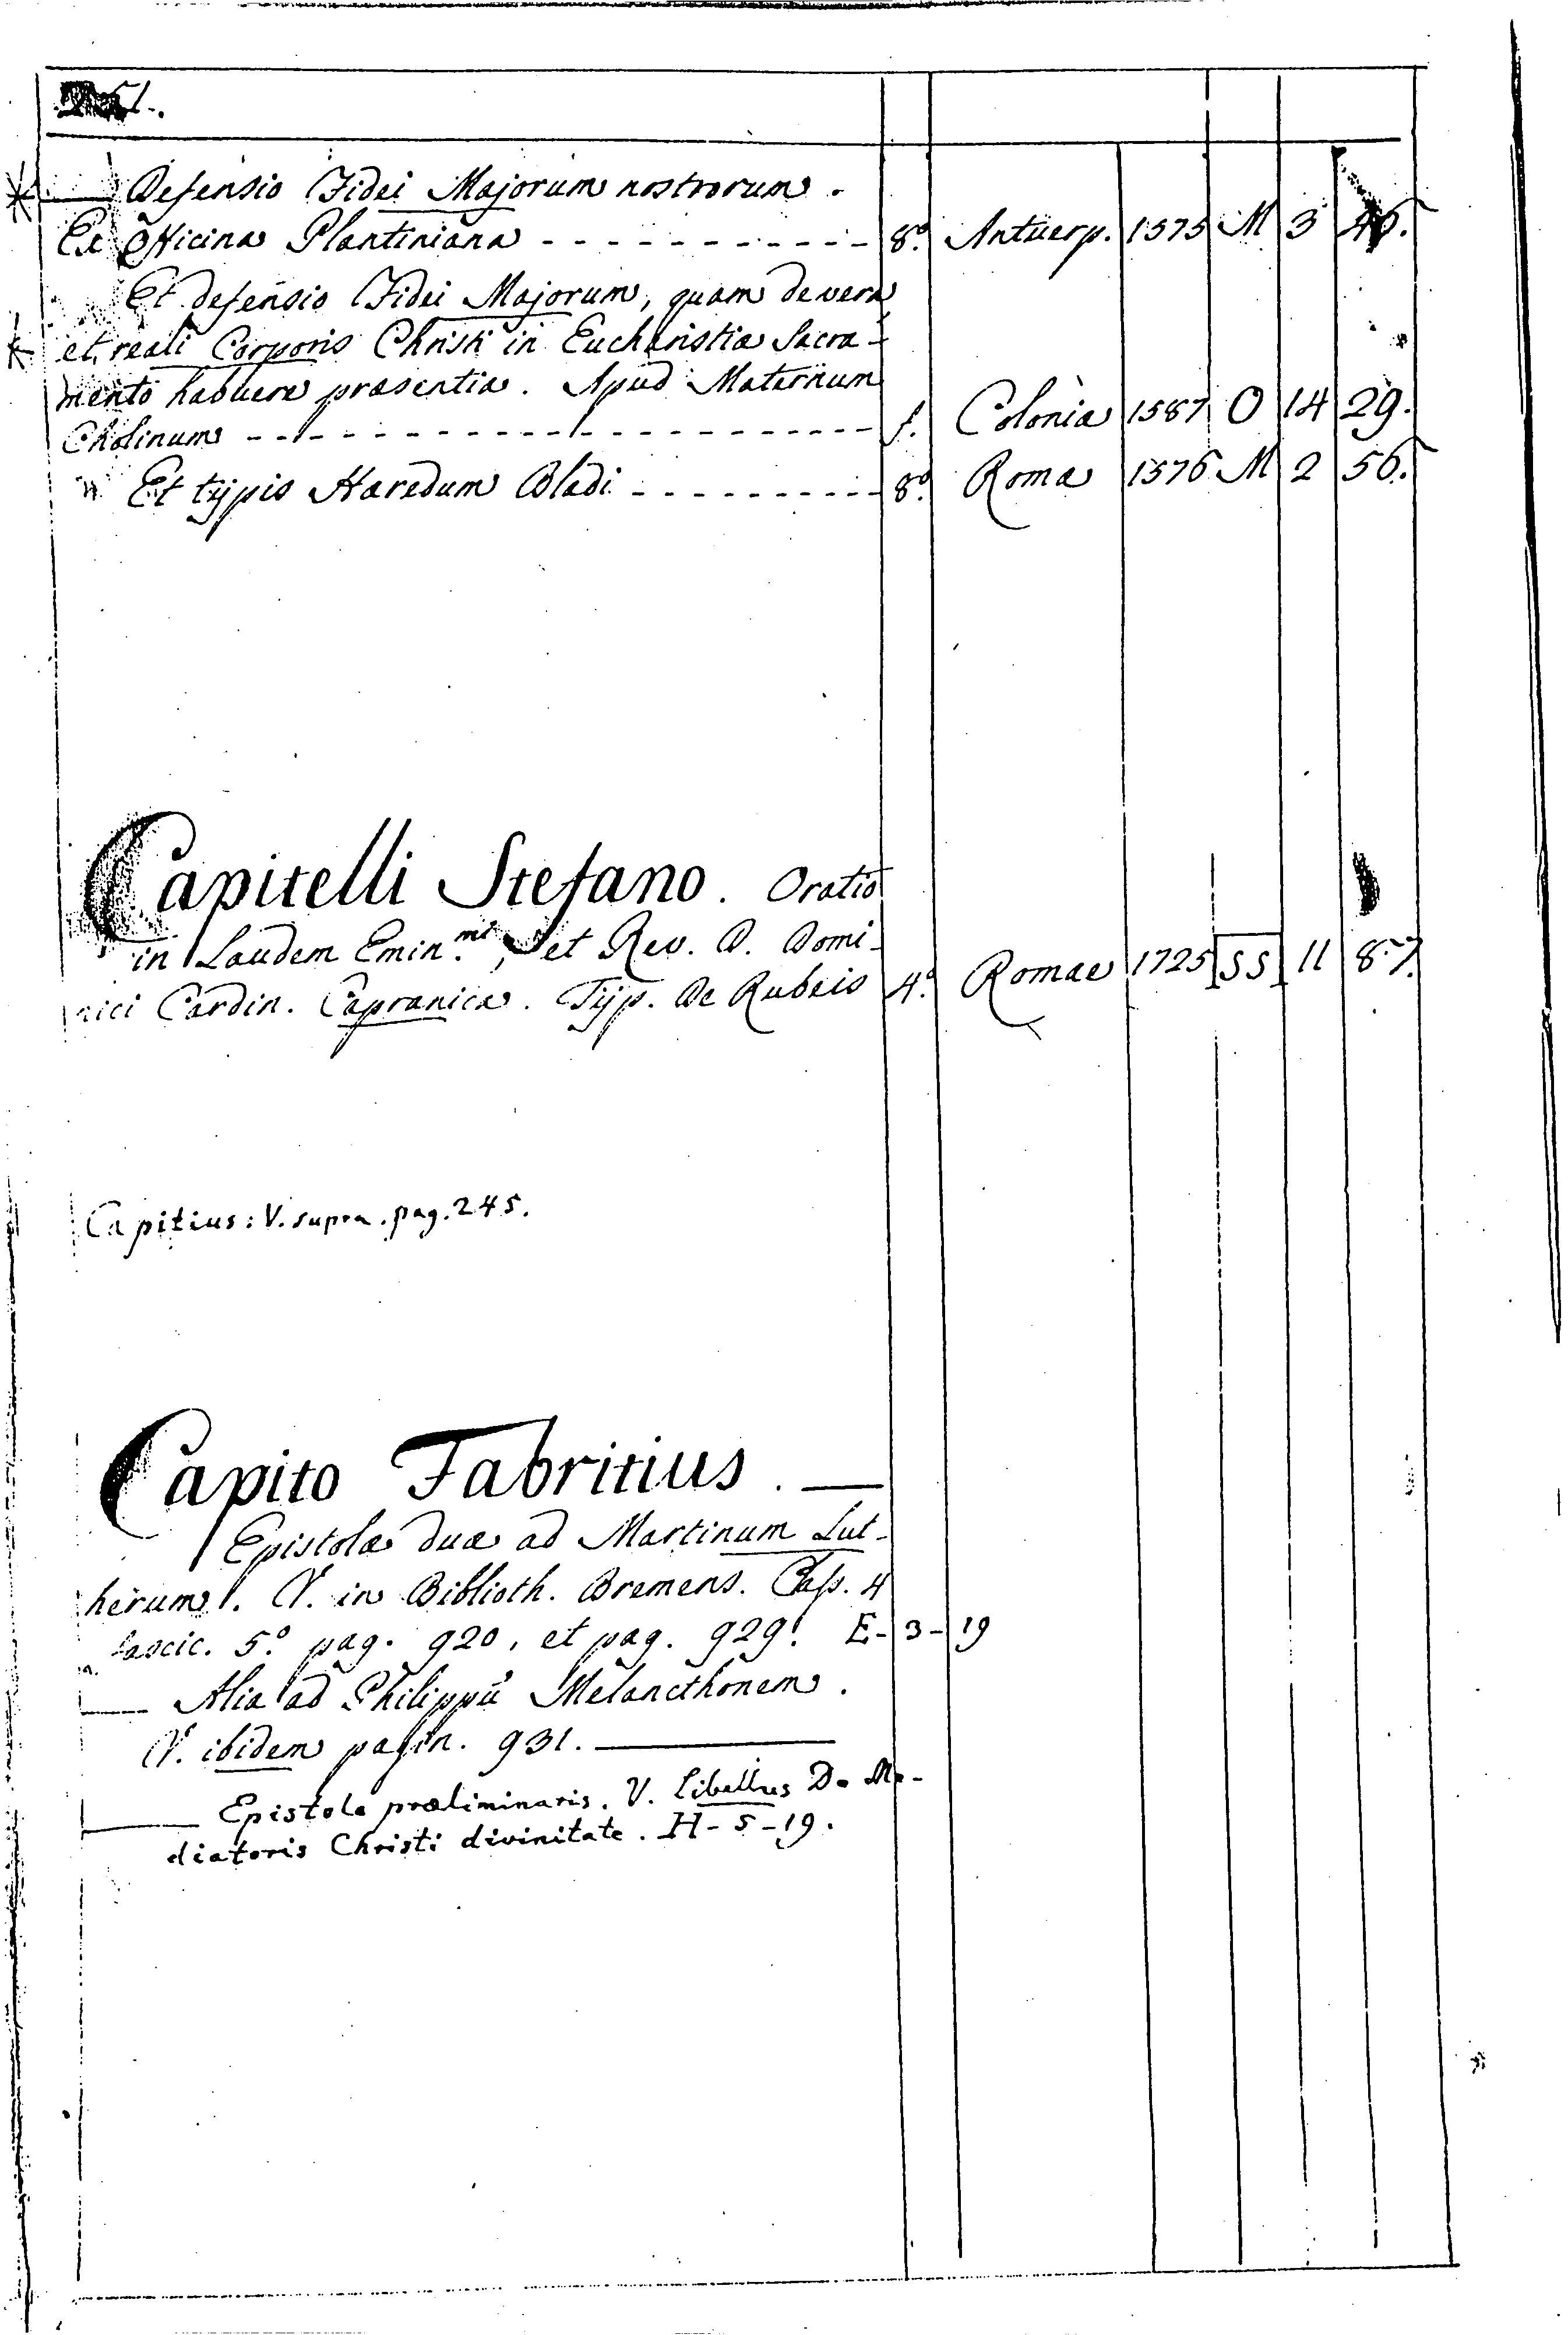 Defensio Fidei Majorum nostrorum.
Ex Officina Plantiniana - - - - - - - - - - - 8.º Antuerp. 1575 M 3
Et defensio Fidei Majorum, quam de vera
et reali Corporis Christi in Eucharistiæ Sacra-
mento habuere præsentia. Apud Maternum
Cholinum - - - - - - - - - - - - - - - - - - - - f. Colonia 1587 O 14 29.
" Et typis Hæredum Bladi - - - - - - - - - 8.º Roma 1576 M 2 56.
Capitelli Stefano. Oratio
in Laudem Emin.mi, et Rev. D. Domi-
nici Cardin. Capranica. Typ. De Rubeis 4.º Romae 1725 SS 11 87.
Capitius: V. supra. pag. 245.
Capito Fabritius. —
Epistolæ duæ ad Martinum Lut-
herum. V. in Biblioth. Bremens. Class. 4
fascic. 5.º pag. 920, et pag. 929. E-3-19
— Alia ad Philippũ Melancthonem.
V. ibidem pagin. 931. —
— Epistola præliminaris. V. Libellus De Me-
diatoris Christi divinitate. H-5-19.